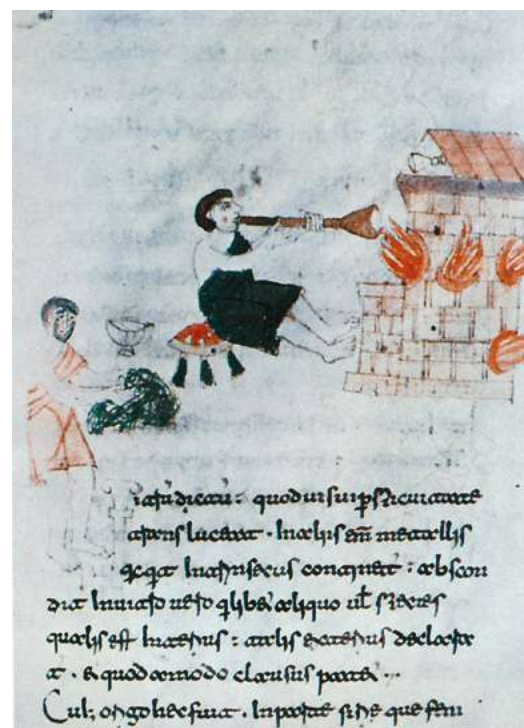 itrū dictū : quod uisui pspicuitate
trans luceat · In aliis enī metallis
qcqd intrinsecus continet : abscon
dit In uitro uero qlibet liquor ul species
qualis est interius : talis exterius declarat
 · & quodāmodo clausus patet ·
Cui; origo hec fuit · In parte sirie que feni